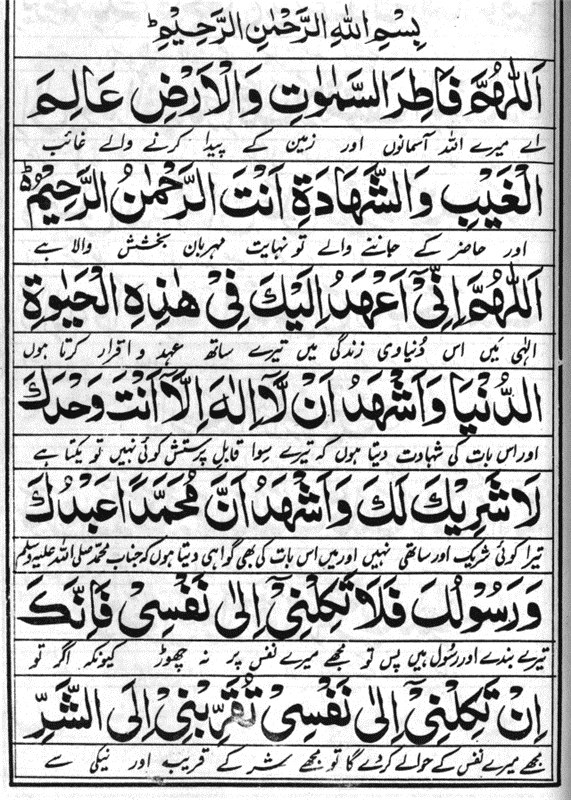 بِسْمِ اللهِ الرَّحْمٰنِ الرَّحِيْمِ
اَللّٰهُمَّ فَاطِرَ السَّمٰوٰتِ وَالْاَرْضِ عَالِمَ
اے میرے اللہ آسمانوں اور زمین کے پیدا کرنے والے غائب
الْغَيْبِ وَالشَّهَادَةِ اَنْتَ الرَّحْمٰنُ الرَّحِيْمُ
اور حاضر کے جاننے والے تو نہایت مہربان بخشش والا ہے
اَللّٰهُمَّ اِنِّيْٓ اَعْهَدُ اِلَيْكَ فِيْ هٰذِهِ الْحَيٰوةِ
الٰہی میں اس دُنیاوی زندگی میں تیرے ساتھ عہد و اقرار کرتا ہوں
الدُّنْيَا وَاَشْهَدُ اَنْ لَّآ اِلٰهَ اِلَّآ اَنْتَ وَحْدَكَ
اور اس بات کی شہادت دیتا ہوں کہ تیرے سوا قابلِ پرستش کوئی نہیں تو یکتا ہے
لَا شَرِيْكَ لَكَ وَاَشْهَدُ اَنَّ مُحَمَّدًا عَبْدُكَ
تیرا کوئی شریک اور ساتھی نہیں اور میں اس بات کی بھی گواہی دیتا ہوں کہ جناب محمد صلی اللہ علیہ وسلم
وَرَسُوْلُكَ فَلَا تَكِلْنِيْٓ اِلٰى نَفْسِيْ فَاِنَّكَ
تیرے بندے اور رسول ہیں پس تو مجھے میرے نفس پر نہ چھوڑ کیونکہ اگر تو
اِنْ تَكِلْنِيْٓ اِلٰى نَفْسِيْ تُقَرِّبْنِيْ اِلَى الشَّرِّ
مجھے میرے نفس کے حوالے کر دے گا تو مجھے شر کے قریب اور نیکی سے